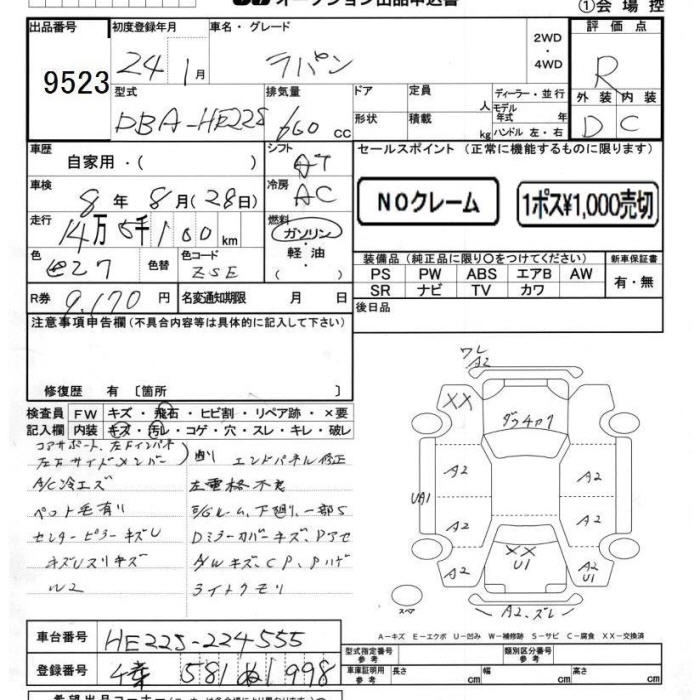 オークション出品申込書
①会場控
出品番号 9523
初度登録年月 24 1月
車名・グレード ラパン
2WD・4WD
評価点 R
外装 D 内装 C
型式 DBA-HE22S
排気量 660 cc
ドア 形状
定員 人
積載 kg
ディーラー・並行
モデル年式 年
ハンドル 左・右
車歴 自家用・( )
シフト AT
車検 8年8月(28日)
冷房 AC
走行 14万5千100km
燃料 ガソリン・軽油
色 色替
色コード ZSE
R券 9,170円
名変通知期限 月 日
セールスポイント (正常に機能するものに限ります)
NOクレーム
1ポス¥1,000売切
装備品(純正品に限り○をつけてください)
新車保証書
PS PW ABS エアB AW
有・無
SR ナビ TV カワ
後日品
注意事項申告欄(不具合内容等は具体的に記入して下さい)
修復歴 有 〔箇所 〕
検査員 FW キズ・飛石・ヒビ割・リペア跡・×要
記入欄 内装 キズ・汚レ・コゲ・穴・スレ・キレ・破レ
コアサポート、左Fインパネ
左Fサイドメンバー
エンドパネル修正
A/C冷エズ
左電格不良
ペット毛有り
E/Gルーム、下廻り、一部S
センターピラーキズU
Dミラーカバーキズ、Pアセ
キズUスリキズ
A/Wキズ、CP、Pハゲ
W2
ライトクモリ
ワレ
A2
XX
ダウキック
A2
A2
UA1
A2
A2
XX
U1
A2
A2
U1
スペア
A2、ズレ
A-キズ E-エクボ U-凹み W-補修跡 S-サビ C-腐食 XX-交換済
車台番号 HE22S-224555
登録番号 581 ぬ 1998
型式指定番号 参考
類別区分番号 参考
車庫証明用 参考
長さ cm
幅 cm
高さ cm